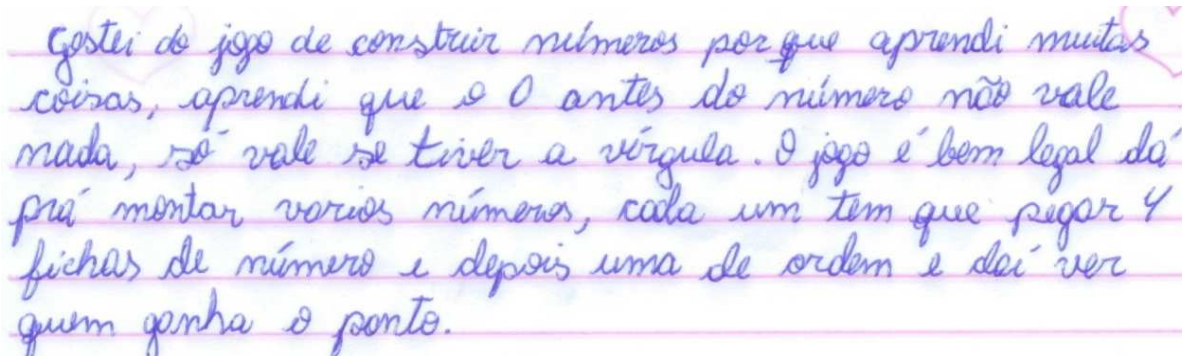 Gostei do jogo de construir números por que aprendi muitas
coisas, aprendi que o 0 antes do número não vale
nada, só vale se tiver a vírgula. O jogo é bem legal dá
prá montar varios números, cada um tem que pegar 4
fichas de número e depois uma de ordem e daí ver
quem ganha o ponto.